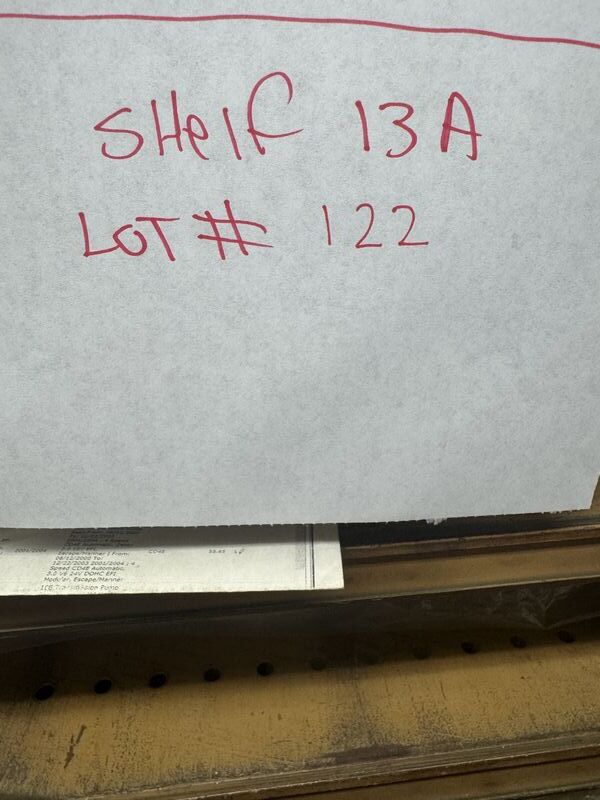 SHelf 13A
LOT # 122
2001/2004
Escape/Mariner | From: CD4E
08/12/2000 To:
12/22/2003 2001/2004 ; 4
Speed CD4E Automatic,
3.0 V6 24V DOHC EFI
Escape/Mariner
Transmission Pump